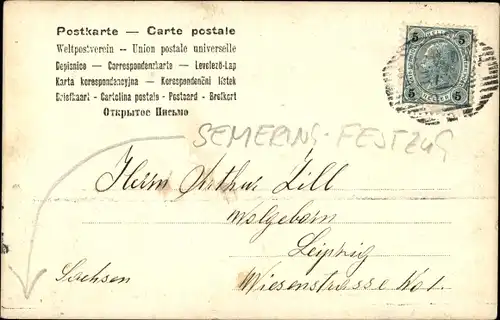 Postkarte — Carte postale
Weltpostverein — Union postale universelle
Dopisnice — Correspondenzkarte — Levelező-Lap
Karta korespondencyjna — Korespondenční lístek
Briefkaart - Cartolina postale - Postcard - Brefkort
Открытое Письмо
5 HELLER 5
5 HELLER 5
SEMERING-FESTZUG
Herrn Arthur Zill
Wolgeborn
Leipzig
Sachsen
Wiesenstrasse No 1.